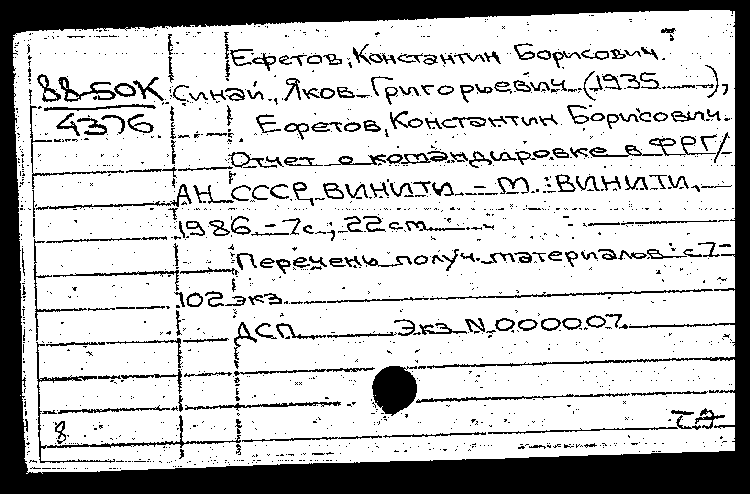 Ефетов, Константин Борисович.
88-50К Синай, Яков Григорьевич (1935 ),
4376 Ефетов, Константин Борисович.
Отчет о командировке в ФРГ/
АН СССР, ВИНИТИ – М.: ВИНИТИ,
1986. – 7с.; 22см.
Перечень получ. материалов: с7-
102 экз.
ДСП Экз N 000007.
8 ТА